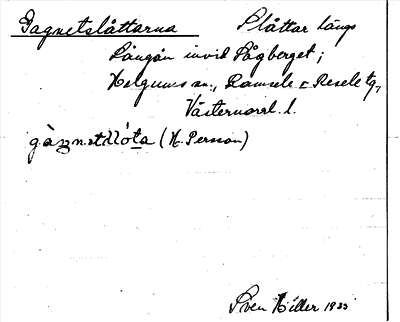 Gagnetslåttarna Slåttar längs
Långån invid Lågberget;
Helgums sn., Ramsele o Resele tg,
Västernorrl. l.
(H. Persson)
Sven Hiller 1933